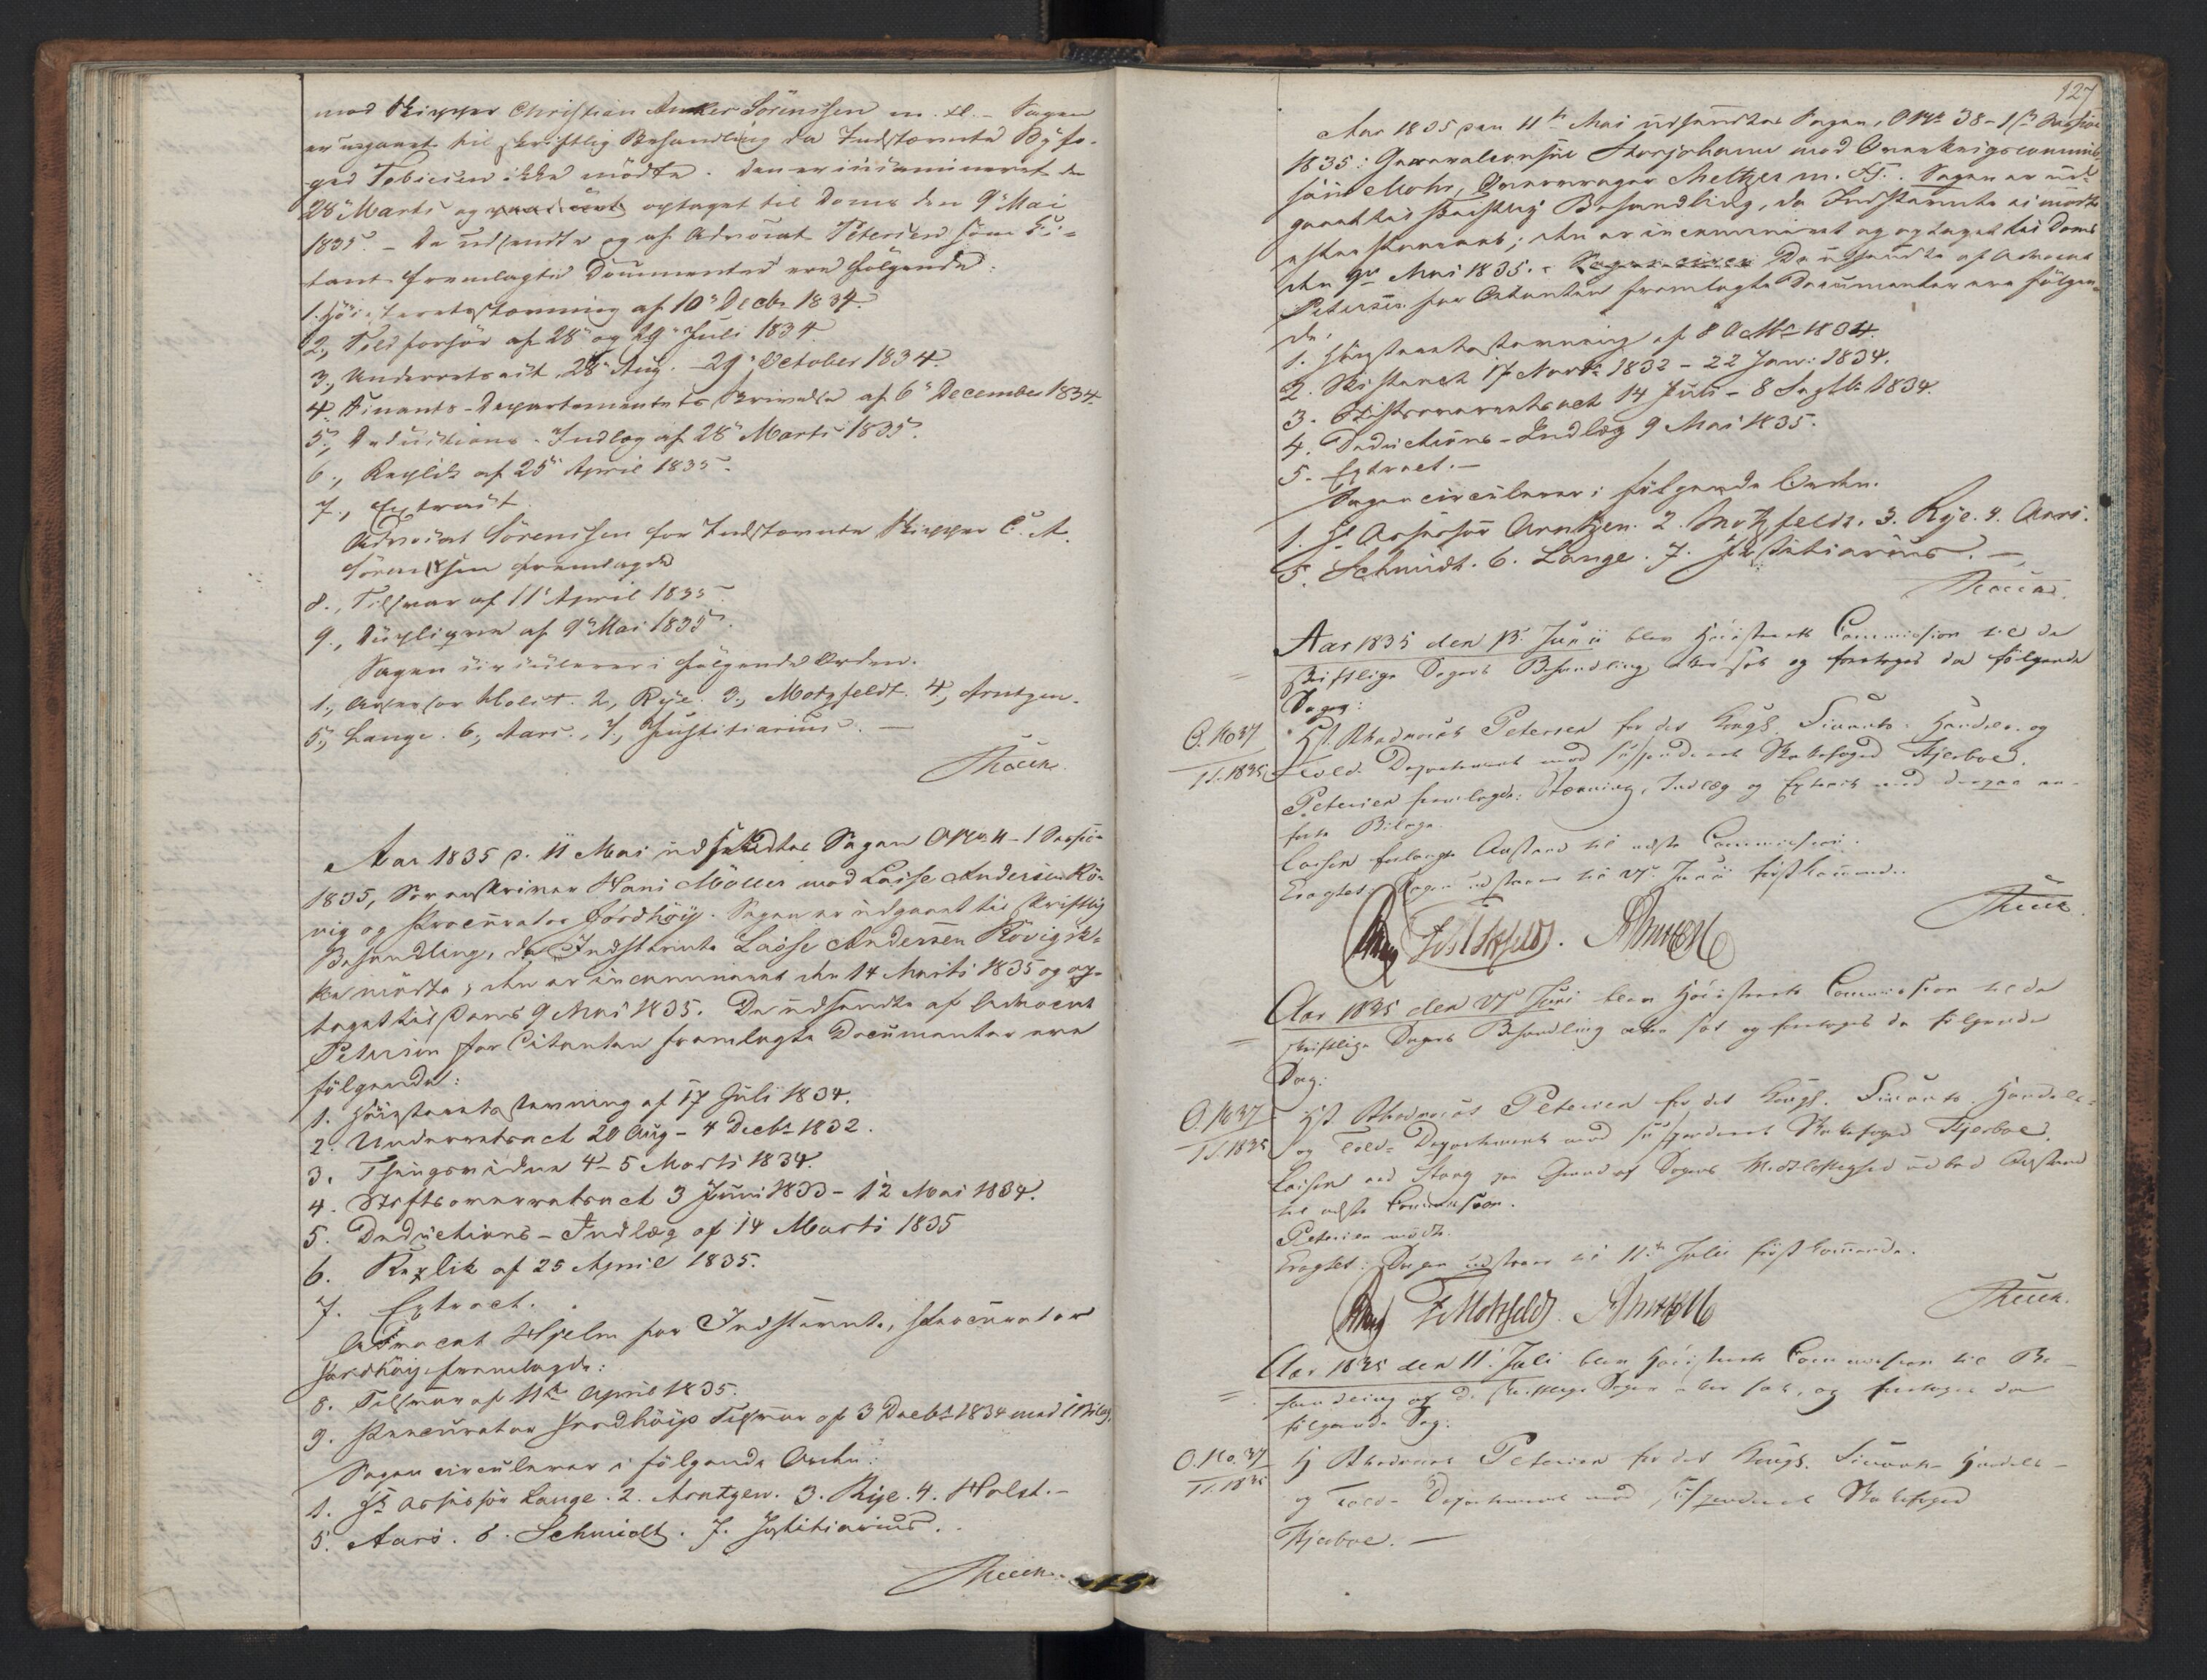 mod Skipper Christian Anker Sörenssen m. fl. – Sagen
er udgaaet til skriftlig Behandling da Indstævnte Byfo-
ged Tobiesen ikke mødte. Den er incamineret den
28 Marts og optaget til Doms den 9 Mai
1835. – De udsendte og af Advocat Petersen som Ci-
tant fremlagte Documenter ere følgende:
1. Höiesteretsstævning af 10 Decbr 1834.
2., Told forhör af 28 og 29 Juli 1834
3., Underretsact 28 Aug. – 29 October 1834.
4. Finants-Departementets Skrivelse af 6 December 1834
5., Deductions-Indlæg af 28 Marts 1835.
6., Replik af 25 April 1835.
7., Extract.
Advocat Sörenssen for Indstævnte Skipper C. A.
Sörenssen fremlagde
8., Tilsvar af 11 April 1835
9., Duplique af 9 Mai 1835.
Sagen circulerer i følgende Orden.
1., Assessor Holst. 2., Rye. 3., Motzfeldt. 4., Arntzen.
5., Lange. 6., Aars., 7., Justitiarius. –
Aar 1835 d. 11 Mai udsendtes Sagen O No 11 – 1 Session
1835, Sorenskriver Hans Möller mod Lasse Andersen Rö-
vig og Procurator Jordhöÿ. Sagen er udgaaet til skriftlig
Behandling, da Indstævnte Lasse Andersen Rövig ik-
ke mödte; den er incamineret den 14 Marts 1835 og op-
taget til Doms 9 Mai 1835. De udsendte af Advocat
Petersen for Citanten fremlagte Documenter ere
følgende:
1. Höiesteretsstævning af 17 Juli 1834.
2. Underretsact 20 Aug – 4 Decbr 1832.
3. Thingsvidne 4 – 5 Marts 1834.
4. Stiftsoverretsact 3 Juni 1833 – 12 Mai 1834.
5. Deductions-Indlæg af 14 Marts 1835
6. Replik af 25 April 1835.
7. Extract.
Advocat Hjelm for Indstævnte, Procurator
Jordhöÿ fremlagde:
8. Tilsvar af 11te April 1835.
9. Procurator Jordhöÿs Tilsvar af 3 Decbr 1834 med 1 Bilag.
Sagen circulerer i følgende Orden:
1. Hr Assessor Lange. 2. Arntzen. 3. Rye. 4. Holst. –
5. Aars. 6. Schmidt. 7. Justitiarius.
127
Aar 1835 den 11te Mai udsendtes Sagen, O No 38 – 1ste Session
1835: Generalconsul Storjohann mod Overkrigscommis-
sair Mohr, Overvrager Meltzer m. Fl. Sagen er ud-
gaaet til skriftlig Behandling, da Indstævnte ei mödte
efter Stævnet; den er incamineret og optaget til Doms
den 9de Mai 1835. – De udsendte af Advocat
Petersen for Citanten fremlagte Documenter ere følgen-
de:
1. Höiesteretsstævning af 8 Octbr 1834.
2. Bistandet 17 Novbr 1832 – 22 Janr 1834.
3. Stiftsoverretsact 14 Juli – 8 Septbr 1834.
4. Deductions-Indlæg 9 Mai 1835.
5. Extract. –
Sagen circulerer i følgende Orden.
1. Hr Assessor Arntzen. 2. Motzfeldt. 3. Rye. 4. Aars.
5. Schmidt. 6. Lange. 7. Justitiarius. –
Aar 1835 den 13. Junii blev Höiesterets Commission til de
skriftlige Sagers Behandling atter sat og foretoges da følgende
Sag:
O. No 37
1 S. 1835
Advocat Petersen for det Kongl. Finants- Handels- og
Told- Departement mod suspenderet Skatefoged Kjerboe.
Petersen fremlagde: Stævning, Indlæg og Extract med derpaa an-
førte Bilage.
Larsen forlangte Anstand til næste Commission.
Eragtet: Sagen udstaaer til 27 Junii førstkommende.
Aar 1835 den 27 Juni blev Höiesterets Commission til de
skriftlige Sagers Behandling atter sat og foretoges da følgende
Sag:
O. No 37
1 S. 1835
Advocat Petersen for det Kongl. Finants- Handels-
og Told- Departement mod suspenderet Skatefoged Kjerboe.
Larsen ved Stang paa Grund af Sagens Vidtløftighed udbad Anstand
til næste Commission.
Petersen mødte.
Eragtet: Sagen udstaaer til 11te Julii førstkommende.
Aar 1835 den 11. Juli blev Höiesterets Commission til Be-
handling af de skriftlige Sager atter sat, og foretoges da
følgende Sag:
O. No. 37
1 S. 1835
Advocat Petersen for det Kongl. Finants- Handels-
og Told- Departement mod suspenderet Skatefoged
Kjerboe. –